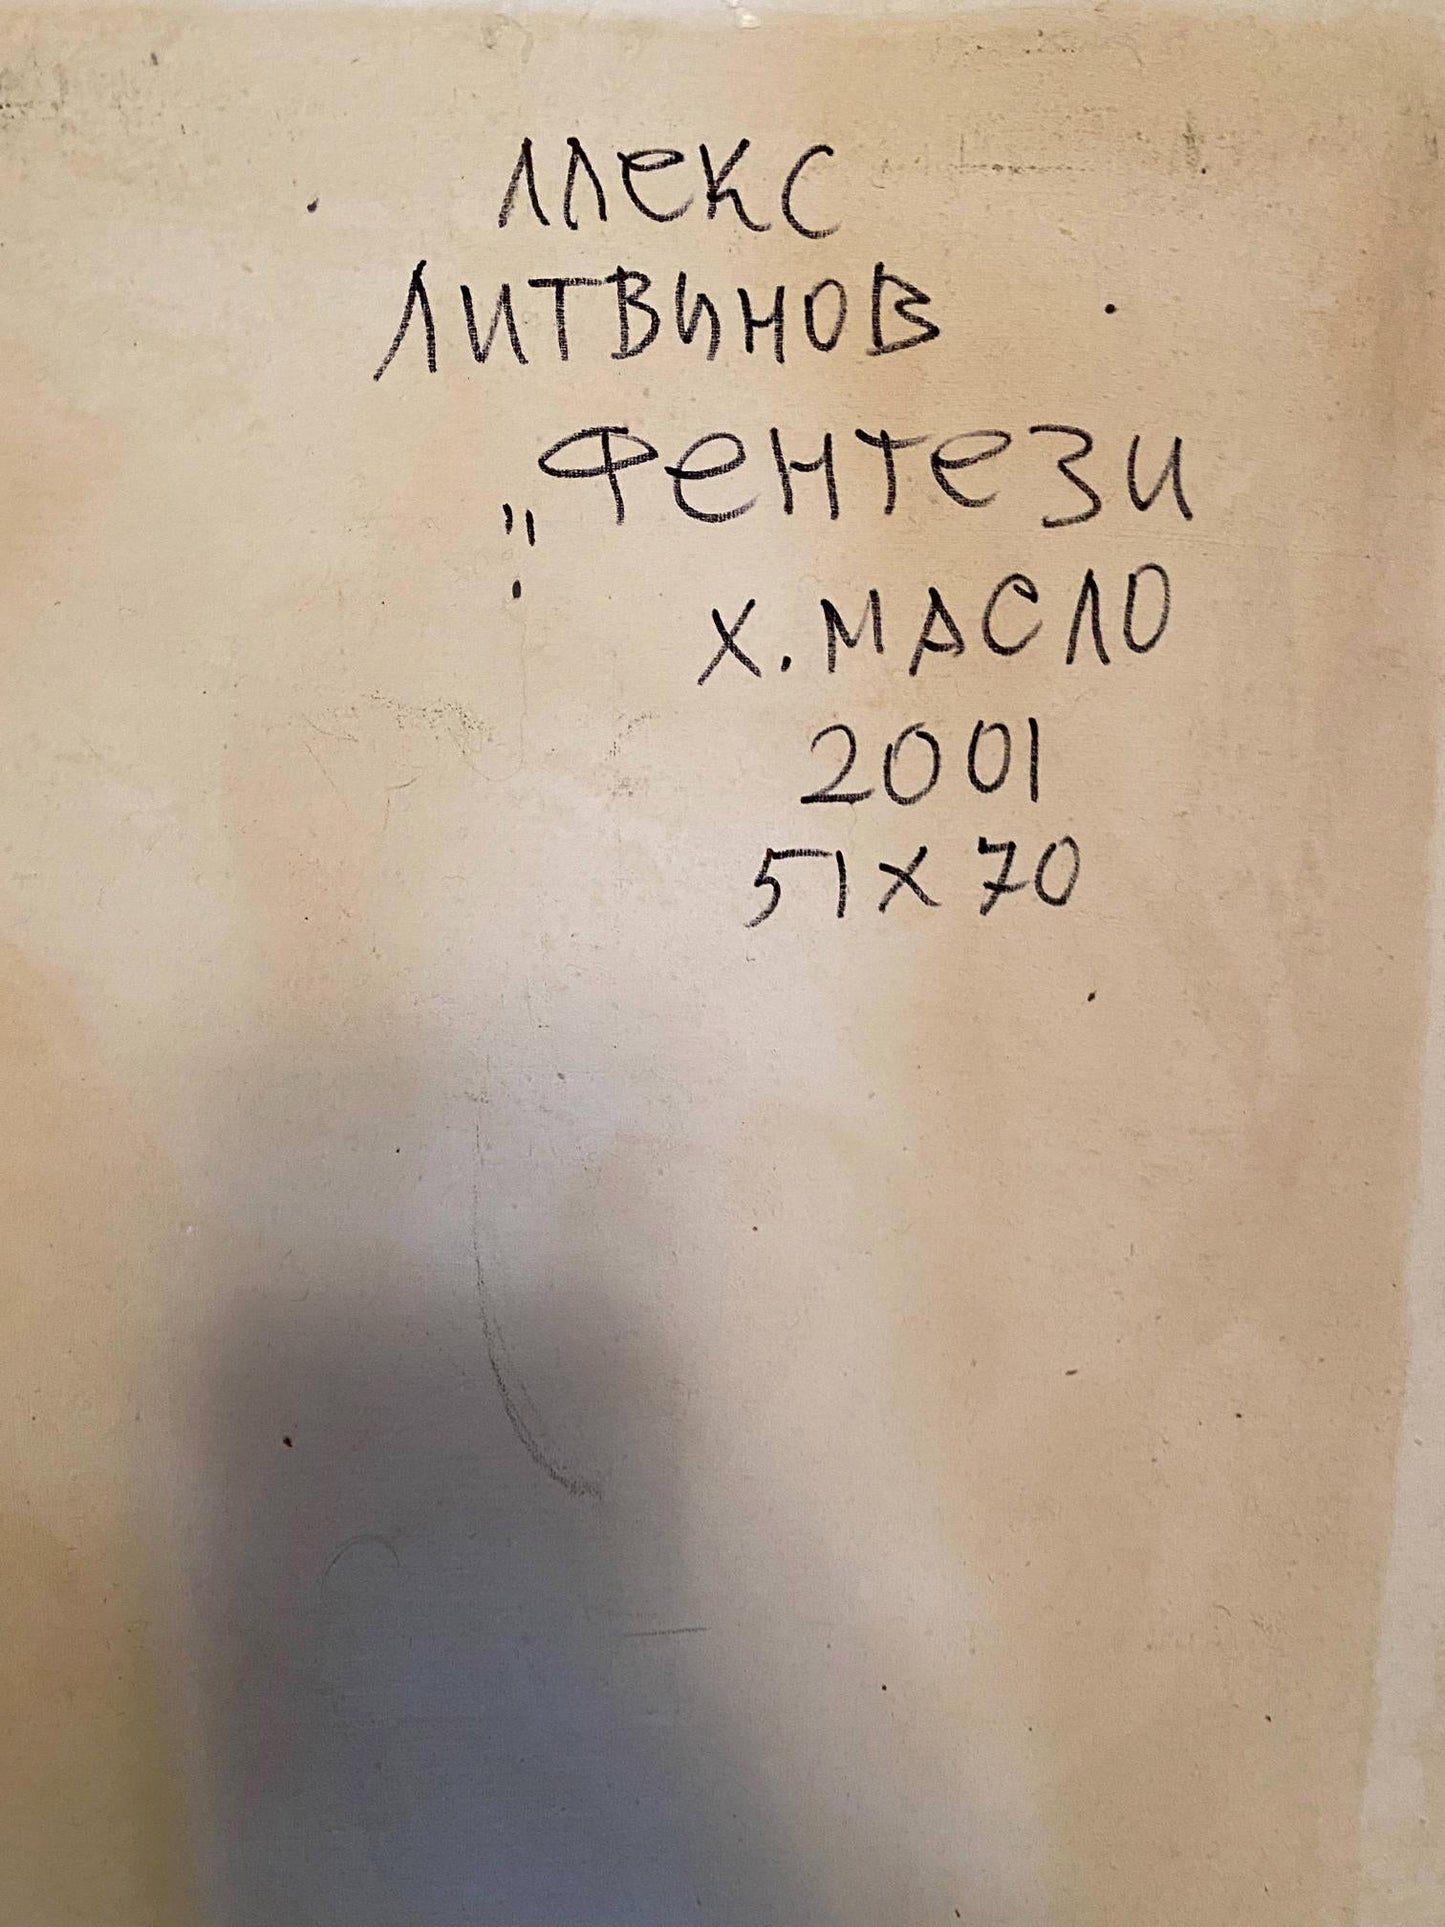 Алекс
Литвинов
„Фентези
х. масло
2001
51 х 70